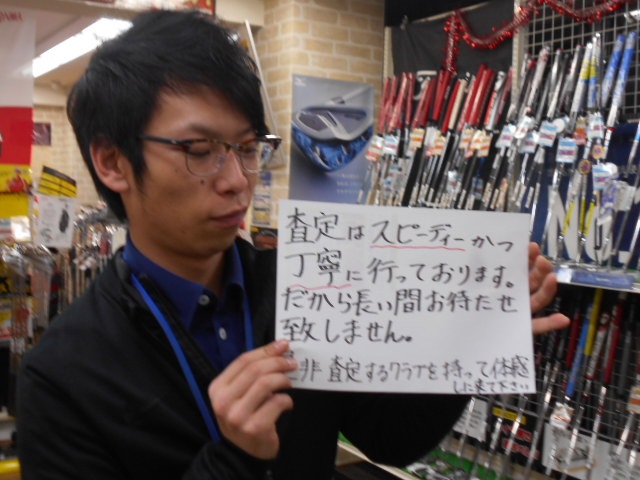 査定はスピーディーかつ
丁寧に行っております。
だから長い間お待たせ
致しません。
是非査定するクラブを持って体感
しに来て下さい